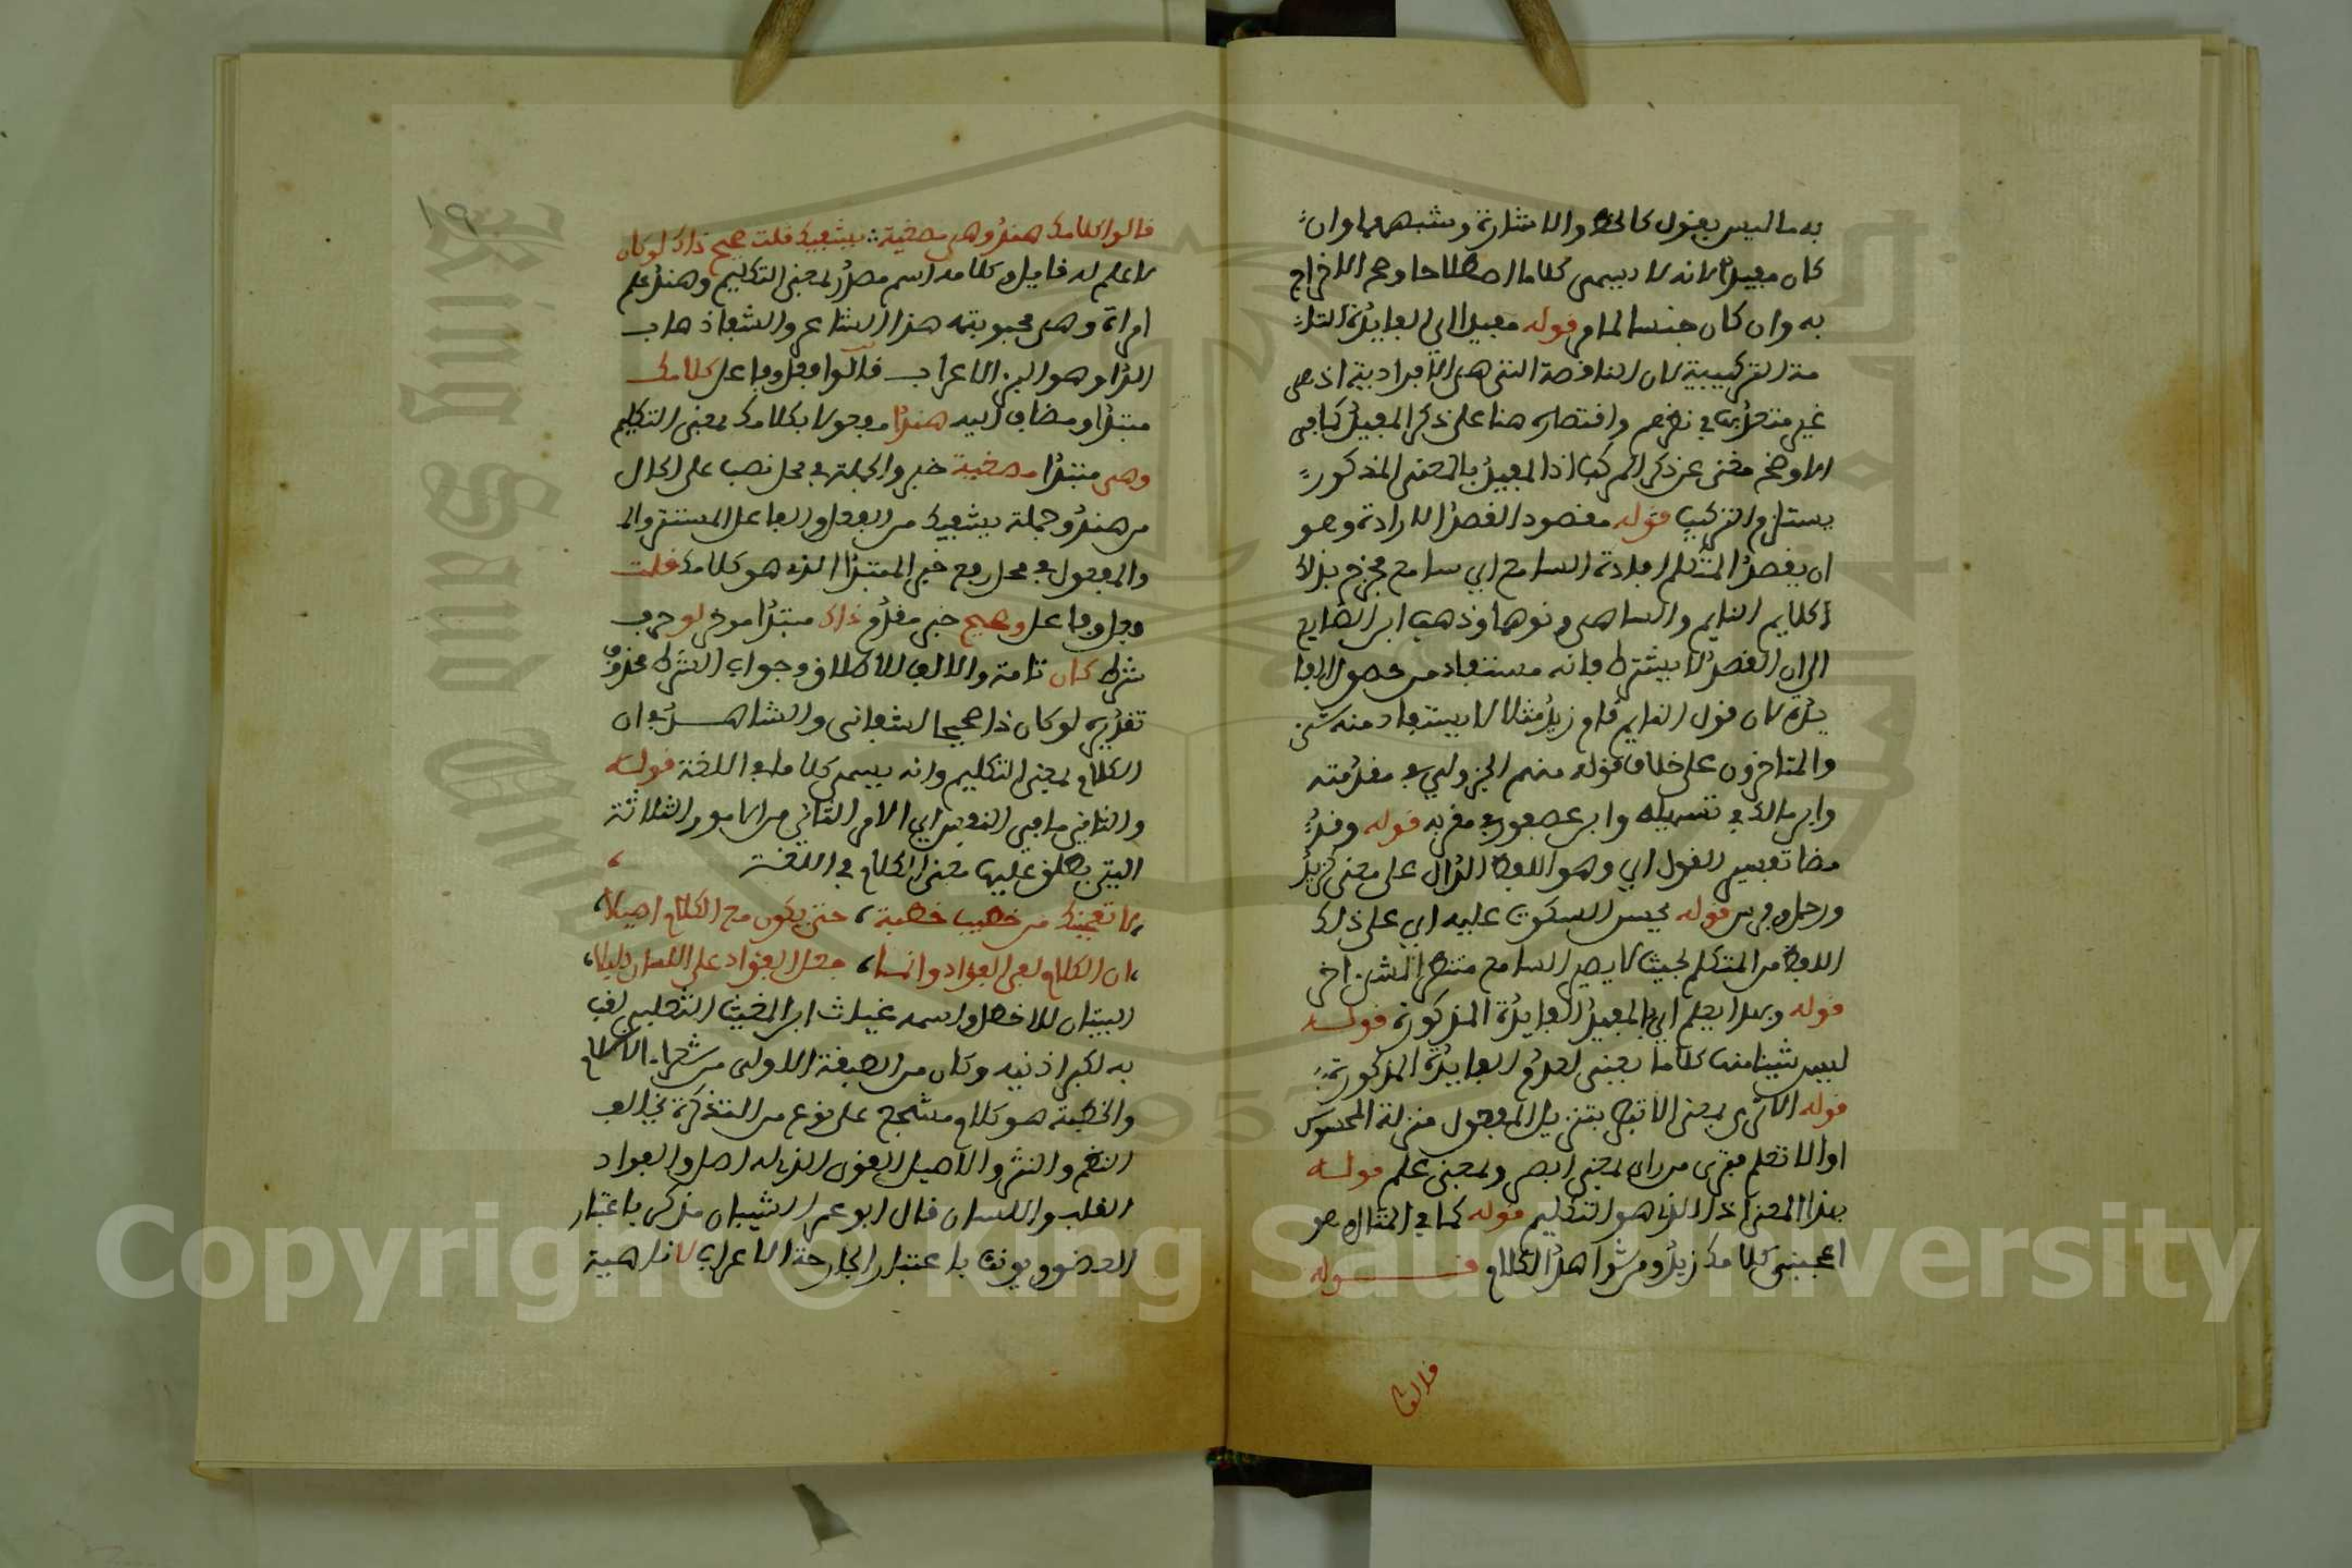 به ما ليس بقول كالخط والاشارة وشبههما وان
كان مفيدا لانه لا يسمى كلاما اصطلاحا وصح الاخراج
به وان كان جنسا لما مر قوله مفيدا اي الفايدة التا
مة التركيبية لان الناقصة التي هي الافرادية اذ هي
غير معتد بها في نظرهم واقتصاره هنا على ذكر المفيد كما في
الاوضح مغنى عن ذكر المركب اذ المفيد بالمعنى المذكور
يستلزم التركيب قوله مقصود القصد الارادة وهو
ان يقصد المتكلم افادة السامع اي سامع فخرج بذلك
كلام النايم والساهي ونحوهما وذهب ابن الضايع
الى ان القصد لا يشترط فانه مستفاد من حصول الفا
يدة لان قول النايم قام زيد مثلا لا يستفاد منه شئ
والمتاخرون على خلاف قوله منهم الجزولي في مقدمته
وابن مالك في تسهيله وابن عصفور في مقربه قوله وقد
مضا تفسير القول اي وهو اللفظ الدال على معنى كزيد
ورجل وفرس قوله يحسن السكوت عليه اي على ذلك
اللفظ من المتكلم بحيث لا يصير السامع منتظرا لشئ اخر
قوله وبهذا يعلم اي بالمفيد الفايدة المذكورة قوله
ليس شيئا منها كلاما يعني لعدم الفايدة المذكورة
قوله الا ترى بمعنى الا تبصر بتنزيل المعقول منزلة المحسوس
او الا تعلم فترى من راى بمعنى ابصر وبمعنى علم قوله
بهذا المعنى اذ الذي هو التكليم قوله كما في المثال هو
اعجبني كلامك زيدا ومن شواهد الكلام قوله
قالوا
١٩
قالوا كلامك هندا وهي مصغية يشفيك قلت صحيح ذاك لو كان
لا اعلم له قايل وكلامه اسم مصدر بمعنى التكليم وهند علم
امراة وهي محبوبته هذا الشاعر والشفا ذهاب
الدا وهو البرء الاعراب قالوا فعل وفاعل كلامك
مبتدا ومضاف اليه هندا مفعولا بكلامك بمعنى التكليم
وهي مبتدا مصغية خبر والجملة في محل نصب على الحال
من هند وجملة يشفيك من الفعل والفاعل المستتر والم
والمفعول في محل رفع خبر المبتدا الذي هو كلامك قلت
فعل وفاعل وصحيح خبر مقدم ذاك مبتدا موخر لو حرف
شرط كان تامة والالف للاطلاق وجواب الشرط محذوف
تقديره لو كان ذا صحيحا لشفاني والشاهد في ان
الكلام بمعنى التكليم وانه يسمى كلاما في اللغة قوله
والثاني ما في النفس اي الامر الثاني من الامور الثلاثة
التي يطلق عليها معنى الكلام في اللغة
لا تعجبنك من خطيب خطبة، حتى يكون مع الكلام اصيلا
ان الكلام لفي الفؤاد وانما، جعل الفؤاد على اللسان دليلا
البيتان للاخطل واسمه غياث ابن المغيث التغلبي لقب
به لكبر اذنيه وكان من الطبقة الاولى من شعراء الاسلام
والخطبة هو كلام مسجع على نوع من التذكرة يخالف
النظم والنثر والاصيل القوى الذي له اصل والفواد
القلب واللسان قال ابو عمر الشيبان مذكر باعتبار
العضو ويونث باعتبار الجارحة الاعراب لا ناهية